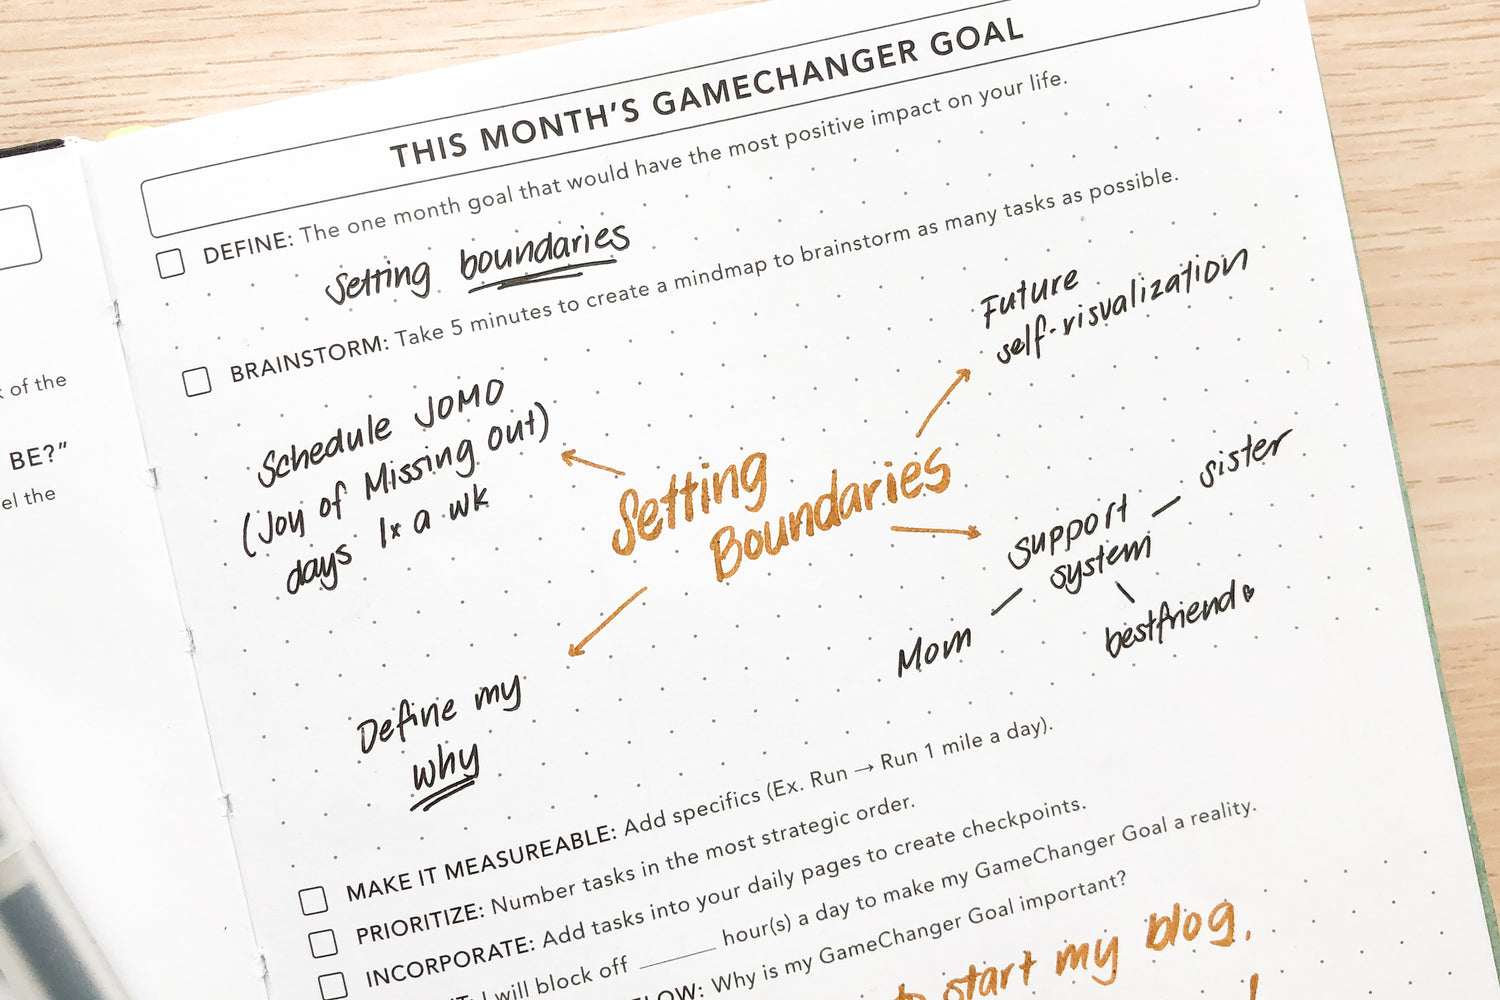 THIS MONTH'S GAMECHANGER GOAL
DEFINE: The one month goal that would have the most positive impact on your life.
Setting boundaries
BRAINSTORM: Take 5 minutes to create a mindmap to brainstorm as many tasks as possible.
Future
self-visualization
Schedule JOMO
(Joy of Missing out)
days 1x a wk
Setting
Boundaries
support
system
sister
Mom
bestfriend
Define my
why
MAKE IT MEASUREABLE: Add specifics (Ex. Run → Run 1 mile a day).
PRIORITIZE: Number tasks in the most strategic order.
INCORPORATE: Add tasks into your daily pages to create checkpoints.
I will block off ______ hour(s) a day to make my GameChanger Goal a reality.
Why is my GameChanger Goal important?
to start my blog.
of the
BE?"
el the